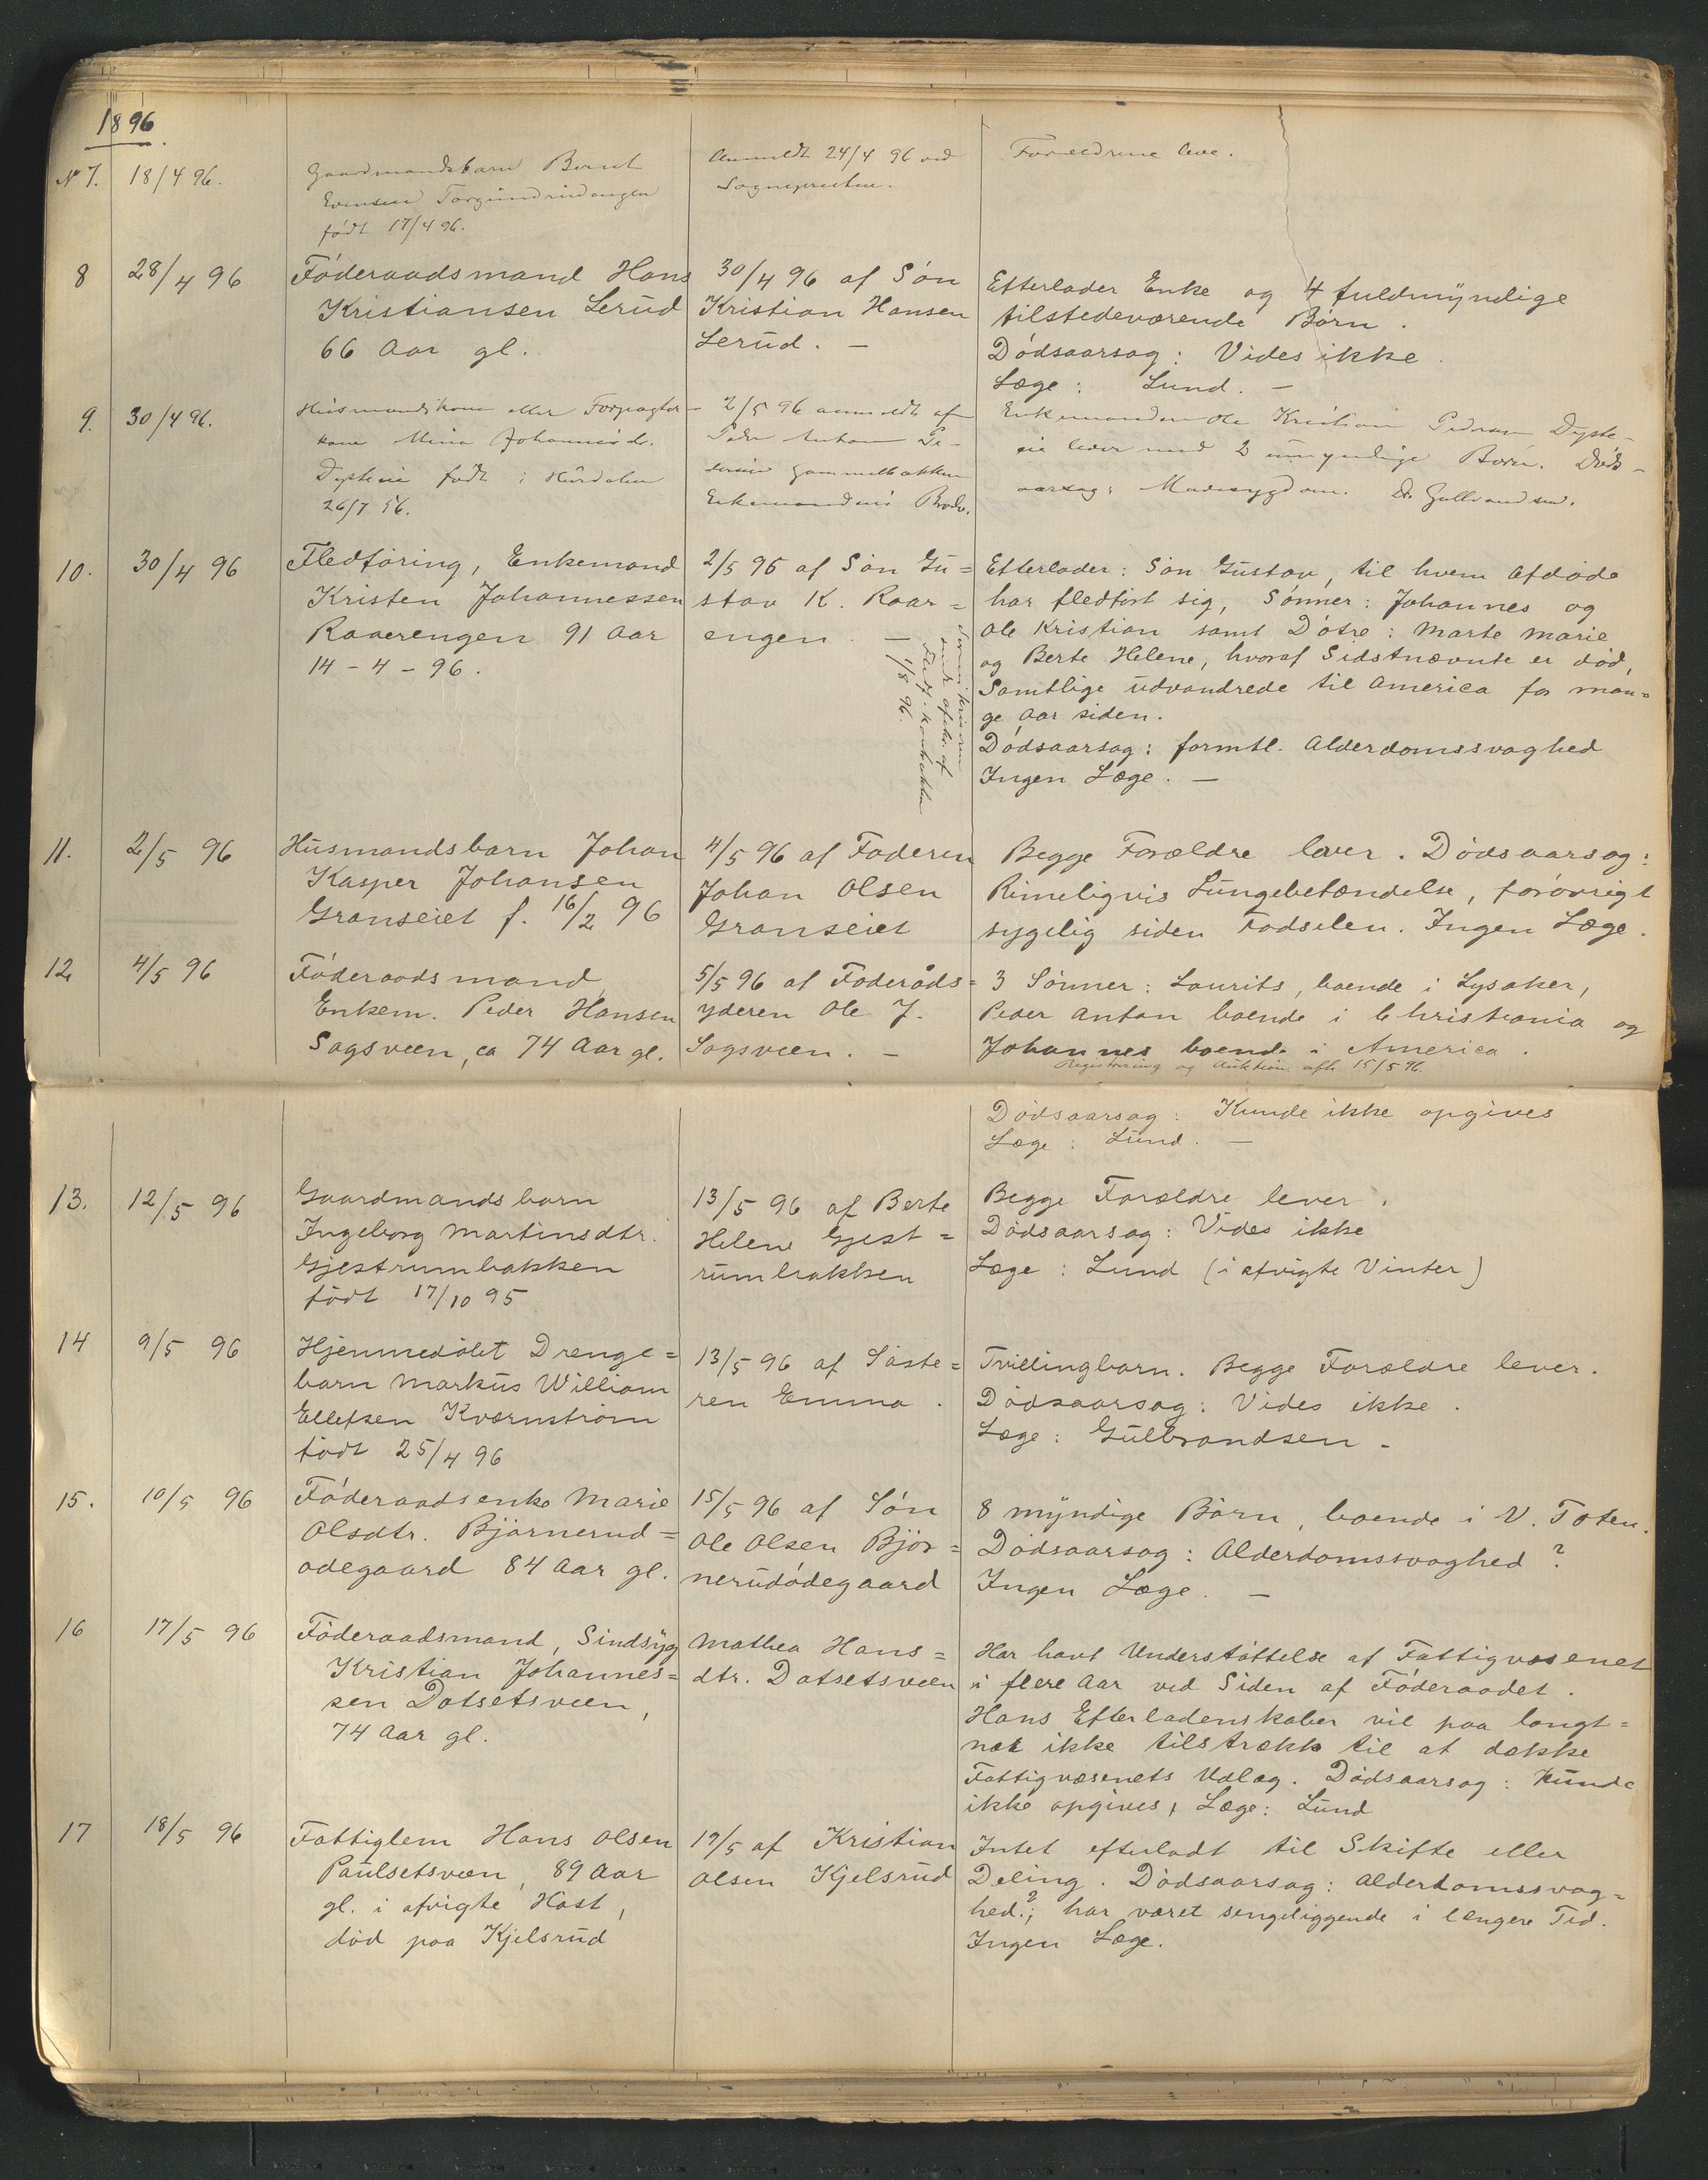 1896
No 7. 18/4 96.
Gaardmandsbarn Bernt
Evensen
født 17/4 96.
Anmeldt 24/4 96 ved
Sognepresten.
Forældrene leve.
8 28/4 96
Föderaadsmand Hans
Kristiansen Lerud
66 Aar gl.
30/4 96 af Søn
Kristian Hansen
Lerud. —
Efterlader Enke og 4 fuldmyndige
tilstedeværende Børn.
Dödsaarsag: Vides ikke.
Læge: Lund. —
9. 30/4 96.
Husmandskone eller Forpagter-
kone Mina Johannesd.
født i Hurdalen
26/7 56.
2/5 96 anmeldt af
Peder Anton Pe-
dersen Gammelbakken
Enkemandens Broder.
Enkemanden Ole Kristian Pedersen Dyste-
eie lever med 2 umyndige Børn. Døds-
aarsag: Mavesygdom. Dr. Gulbrandsen.
10. 30/4 96
Fledföring, Enkemand
Kristen Johannessen
Raaerengen 91 Aar
14-4-96.
2/5 96 af Søn Gu=
stav K. Roar=
engen. —
1/8 96.
Efterlader: Søn Gustav, til hvem Afdøde
har fledfört sig, Sönner: Johannes og
Ole Kristian samt Døtre: Marte Marie
og Berte Helene, hvoraf Sidstnævnte er död,
Samtlige udvandrede til America for man=
ge Aar siden.
Dödsaarsag: formtl. Alderdomssvaghed
Ingen Læge. —
11. 2/5 96
Husmandsbarn Johan
Kasper Johansen
Granseiet f. 16/2 96
4/5 96 af Faderen
Johan Olsen
Granseiet
Begge Forældre lever. Dödsaarsag:
Rimeligvis Lungebetændelse, forövrigt
sygelig siden Fødselen. Ingen Læge.
12 4/5 96
Föderaadsmand,
Enkem. Peder Hansen
Sagsveen, ca 74 Aar gl.
5/5 96 af Föderåds=
yderen Ole J.
Sagsveen. —
3 Sönner: Laurits, boende i Lysaker,
Peder Anton boende i Christiania og
Johannes boende i America.
Registrering og Auktion afh. 15/5 96.
Dödsaarsag: Kunde ikke opgives
Læge: Lund. —
13. 12/5 96
Gaardmandsbarn
Ingeborg Martinsdtr.
Gjestrumbakken
födt 17/10 95
13/5 96 af Berte
Helene Gjest=
rumbakken
Begge Forældre lever.
Dödsaarsag: Vides ikke
Læge: Lund (i afvigte Vinter)
14 9/5 96
Hjemmedöbt Drenge=
barn Markus William
Ellefsen Kværnström
födt 25/4 96
13/5 96 af Söste=
ren Emma.
Tvillingbarn. Begge Forældre lever.
Dödsaarsag: Vides ikke.
Læge: Gulbrandsen -
15. 10/5 96
Föderaadsenke Marie
Olsdtr. Björnerud=
ødegaard 84 Aar gl.
15/5 96 af Søn
Ole Olsen Björ=
nerudödegaard
8 myndige Börn, boende i V. Toten.
Dödsaarsag: Alderdomssvaghed?
Ingen Læge. —
16 17/5 96
Föderaadsmand, Sindsyg
Kristian Johannes=
sen Dotsetsveen,
74 Aar gl.
Mathea Hans=
dtr. Dotsetsveen
Har havt Understöttelse af Fattigvæsenet
i flere Aar ved Siden af Föderaadet.
Hans Efterladenskaber vil paa langt=
nær ikke tilstrække til at dække
Fattigvæsenets Udlæg. Dödsaarsag: Kunde
ikke opgives, Læge: Lund
17 18/5 96
Fattiglem Hans Olsen
Paulsetsveen, 89 Aar
gl. i afvigte Høst,
död paa Kjelsrud
19/5 af Kristian
Olsen Kjelsrud
Intet efterladt til Skifte eller
Deling. Dödsaarsag: Alderdomssvag=
hed?; har været sengeliggende i længere Tid.
Ingen Læge.